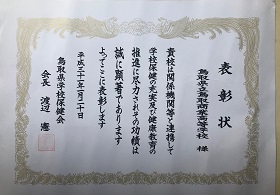 表彰状
鳥取県立鳥取商業高等学校 様
貴校は関係機関等と連携して
学校保健の充実及び健康教育の
推進に尽力されその功績は
誠に顕著であります
よってここに表彰します
平成三十一年一月二十日
鳥取県学校保健会
会長 渡辺 憲